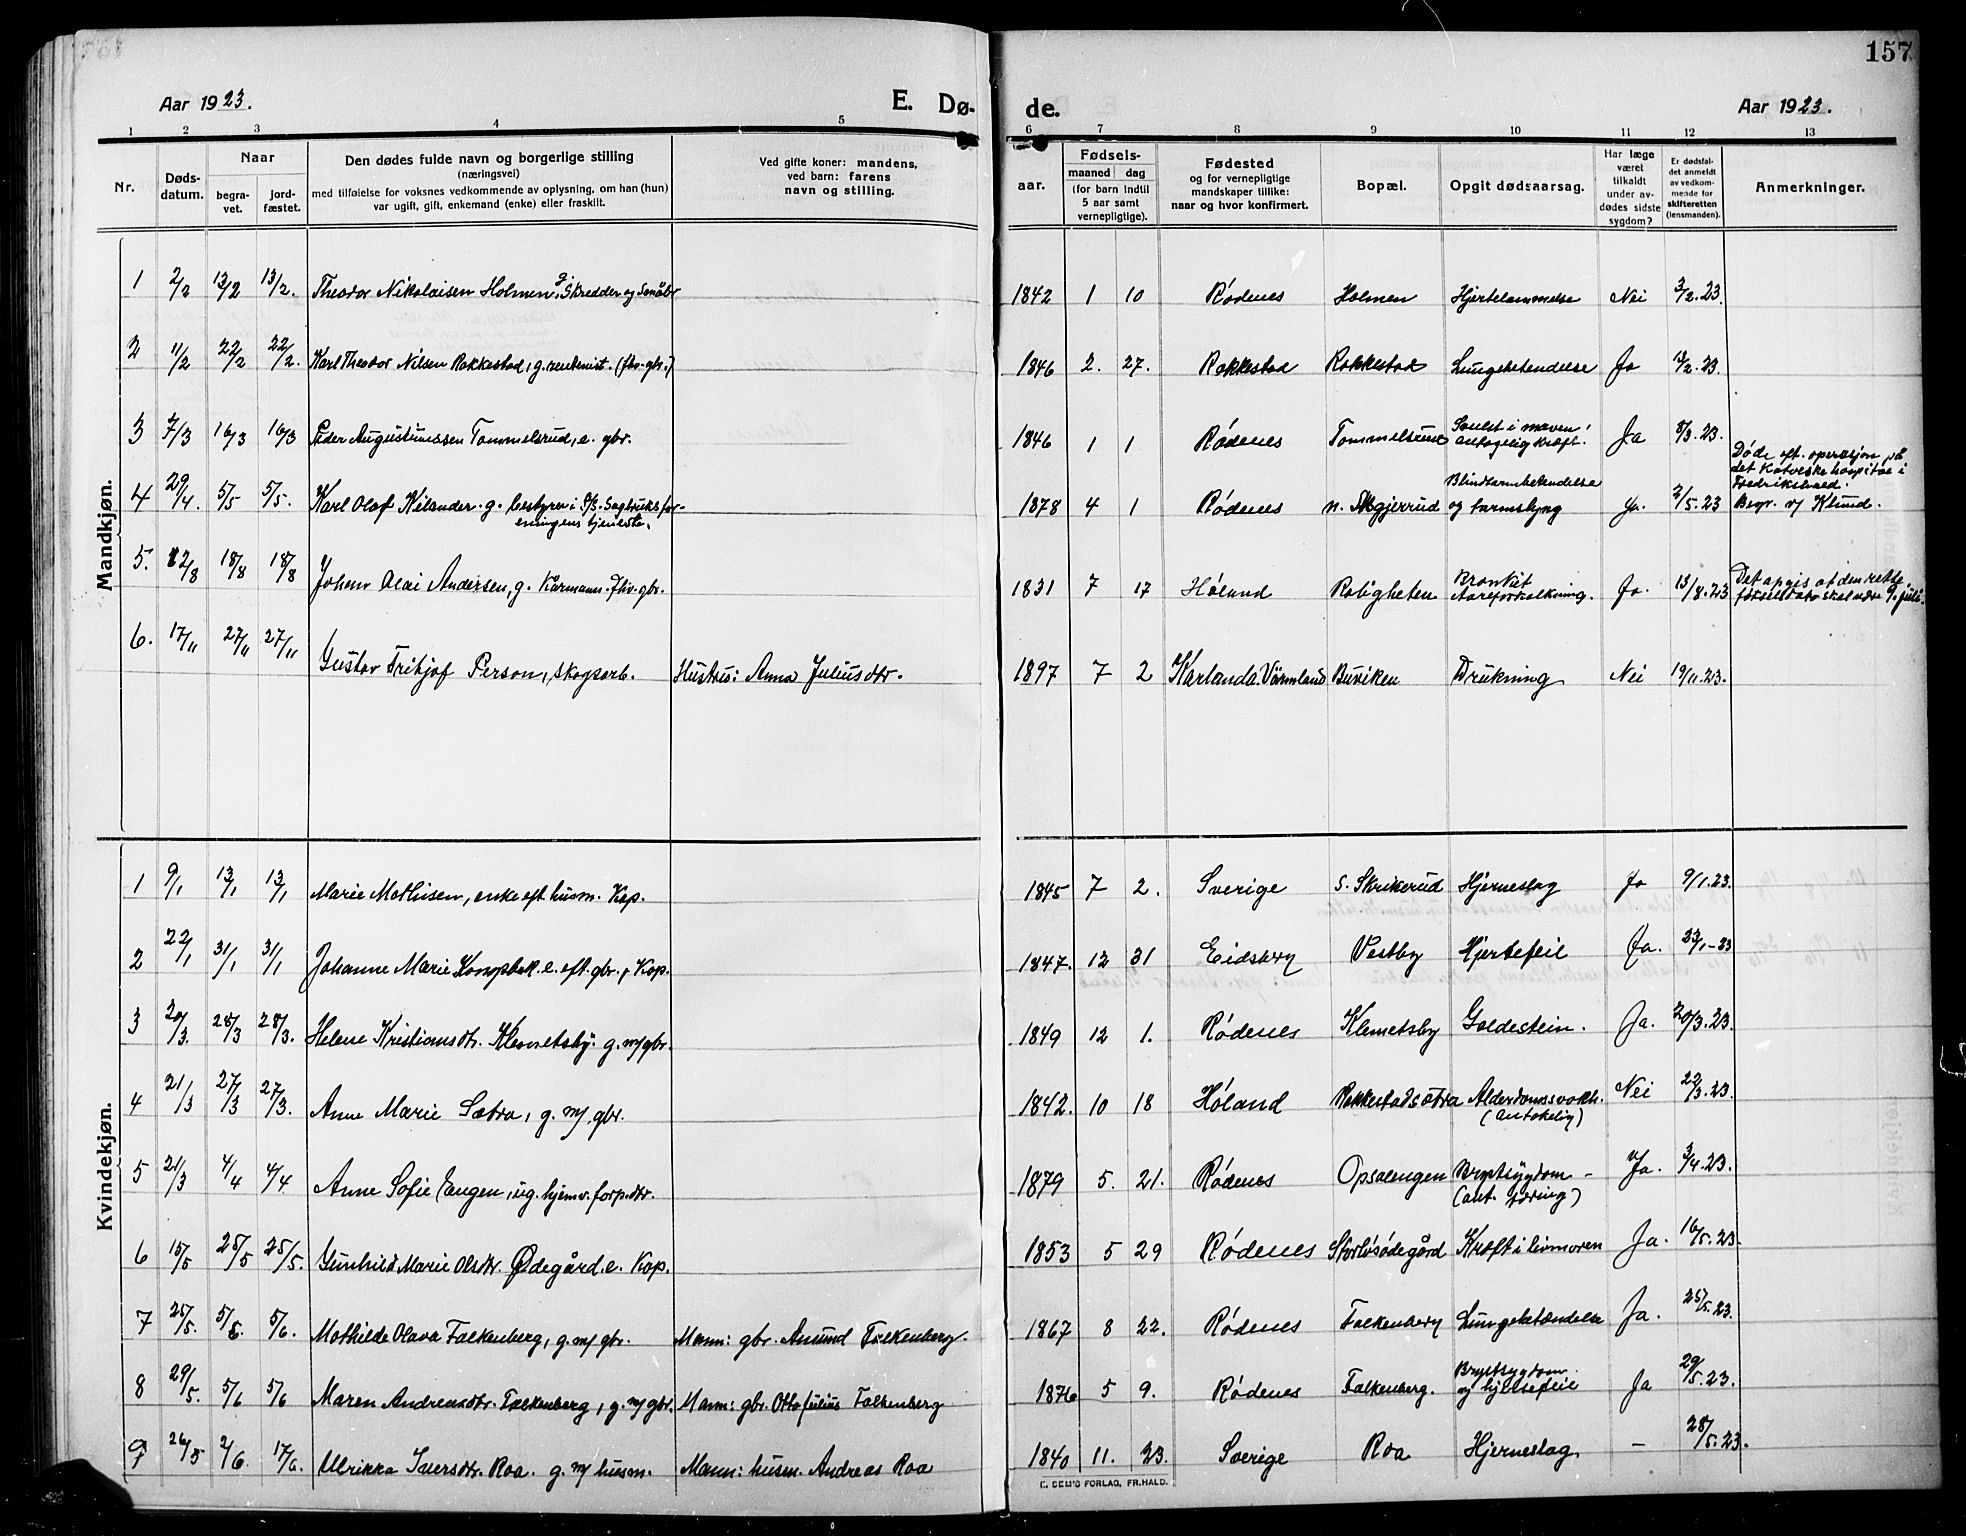 157
Aar 1923.
E. Dø-
de.
Aar 1923.
1 2 3 4 5
6 7 8 9 10 11 12 13
Nr.
Døds-
datum.
Naar
begra-
vet.
jord-
fæstet.
Den dødes fulde navn og borgerlige stilling
(næringsvei)
med tilføielse for voksnes vedkommende av oplysning, om han (hun)
var ugift, gift, enkemand (enke) eller fraskilt.
Ved gifte koner: mandens,
ved barn: farens
navn og stilling.
aar.
Fødsels-
maaned dag
(for barn indtil
5 aar samt
vernepligtige).
Fødested
og for vernepligtige
mandskaper tillike:
naar og hvor konfirmert.
Bopæl.
Opgit dødsaarsag.
Har læge
været
tilkaldt
under av-
dødes sidste
sygdom?
Er dødsfal-
det anmeldt
av vedkom-
mende for
skifteretten
(lensmanden).
Anmerkninger.
Mandkjøn.
1 2/2 13/2 13/2. Theodor Nikolaisen Holmen, g. Skredder og Småbr 1842 1 10 Rødenes Holmen Hjertelammelse Nei 3/2.23.
2 11/2 22/2 22/2. Karl Theodor Nilsen Rakkestad, g. rentenist. (fhv. gbr.) 1846 2. 27. Rakkestad Rakkestad Lungebetendelse Ja 12/2.23.
3 7/3 16/3 16/3 Peder Augustinussen Tommelsrud, e. gbr. 1846 1 1 Rødenes Tommelsrud Svulst i maven antagelig kræft. Ja 8/3.23.
4 29/4. 5/5 5/5. Karl Olaf Kilander. g. bestyrer i A/S. Sagbruksfor-
eningens tjeneste. 1878 4 1 Rødenes n. Skgjerrud Blindtarmbetendelse
og tarmslyng Ja. 2/5.23 Døde eft. operasjon på
det Katolske hospital i
Fredrikshald.
Begr. v/ Klund.
5. 12/8 18/8 18/8 Johan Olai Andersen, g. Kårmann. fhv. gbr. 1831 7 17 Høland Roligheten Bronkit
Aareforkalkning. Ja. 13/8.23 Det opgis at den rette
fødselsdato skal være 9. juli.
6. 17/11 27/11 27/11 Gustav Fritjof Person, skogsarb. Hustru: Anna Juliusdtr. 1897 7 2 Karlanda. Värmland Buviken Drukning Nei 19/11.23.
Kvindekjøn.
1 9/1 13/1 13/1 Marie Mathisen, enke eft. husm. Kap. 1845 7 2. Sverige S. Skrikerud Hjerneslag Ja 9/1.23.
2 22/1 31/1 31/1 Johanne Marie e. eft. gbr., Kap. 1847. 12 31 Eidsberg Vestby Hjertefeil Ja. 23/1-23
3 20/3. 28/3 28/3. Helene Kristiansdtr. Klemetsby. g. m/ gbr. 1849 12 1. Rødenes Klemetsby Galdestein. Ja. 20/3.23.
4 21/3 27/3 27/3. Anne Marie Sætra, g. m/ gbr. 1842. 10 18 Høland Rakkestadsætra Alderdomssvakh.
(antakelig) Nei 22/3.23.
5 21/3 4/4 4/4 Anne Sofie Engen, ug. hjemv. forp.dtr. 1879 5. 21. Rødenes Opsalengen Brystsygdom -
(ant. tæring) Ja. 3/4.23.
6 15/5 25/5 25/5. Gunhild Marie Olsdtr. Ødegård. e. Kap. 1853 5 29 Rødenes Storløsødegård Kræft i livmoren Ja. 16/5.23.
7 25/5. 5/6. 5/6. Mathilde Olava Falkenberg, g. m/ gbr. Mann: gbr. Amund Falkenberg. 1867 8 22. Rødenes Falkenberg Lungebetændelse Ja. 25/5.23.
8 29/5. 5/6 5/6 Maren Andreasdtr. Falkenberg, g. m/ gbr. Mann: gbr. Otto Julius Falkenberg 1876 5 9. Rødenes Falkenberg. Brystsygdom
og hjertefeil Ja 29/5.23.
9 26/5 2/6 17/6. Ulrikka Iversdtr. Roa. g. m/ husm. Mann: husm. Andreas Roa 1840 11. 23. Sverige Roa Hjerneslag - 28/5.23.
E. SEM'S FORLAG, FR.HALD.